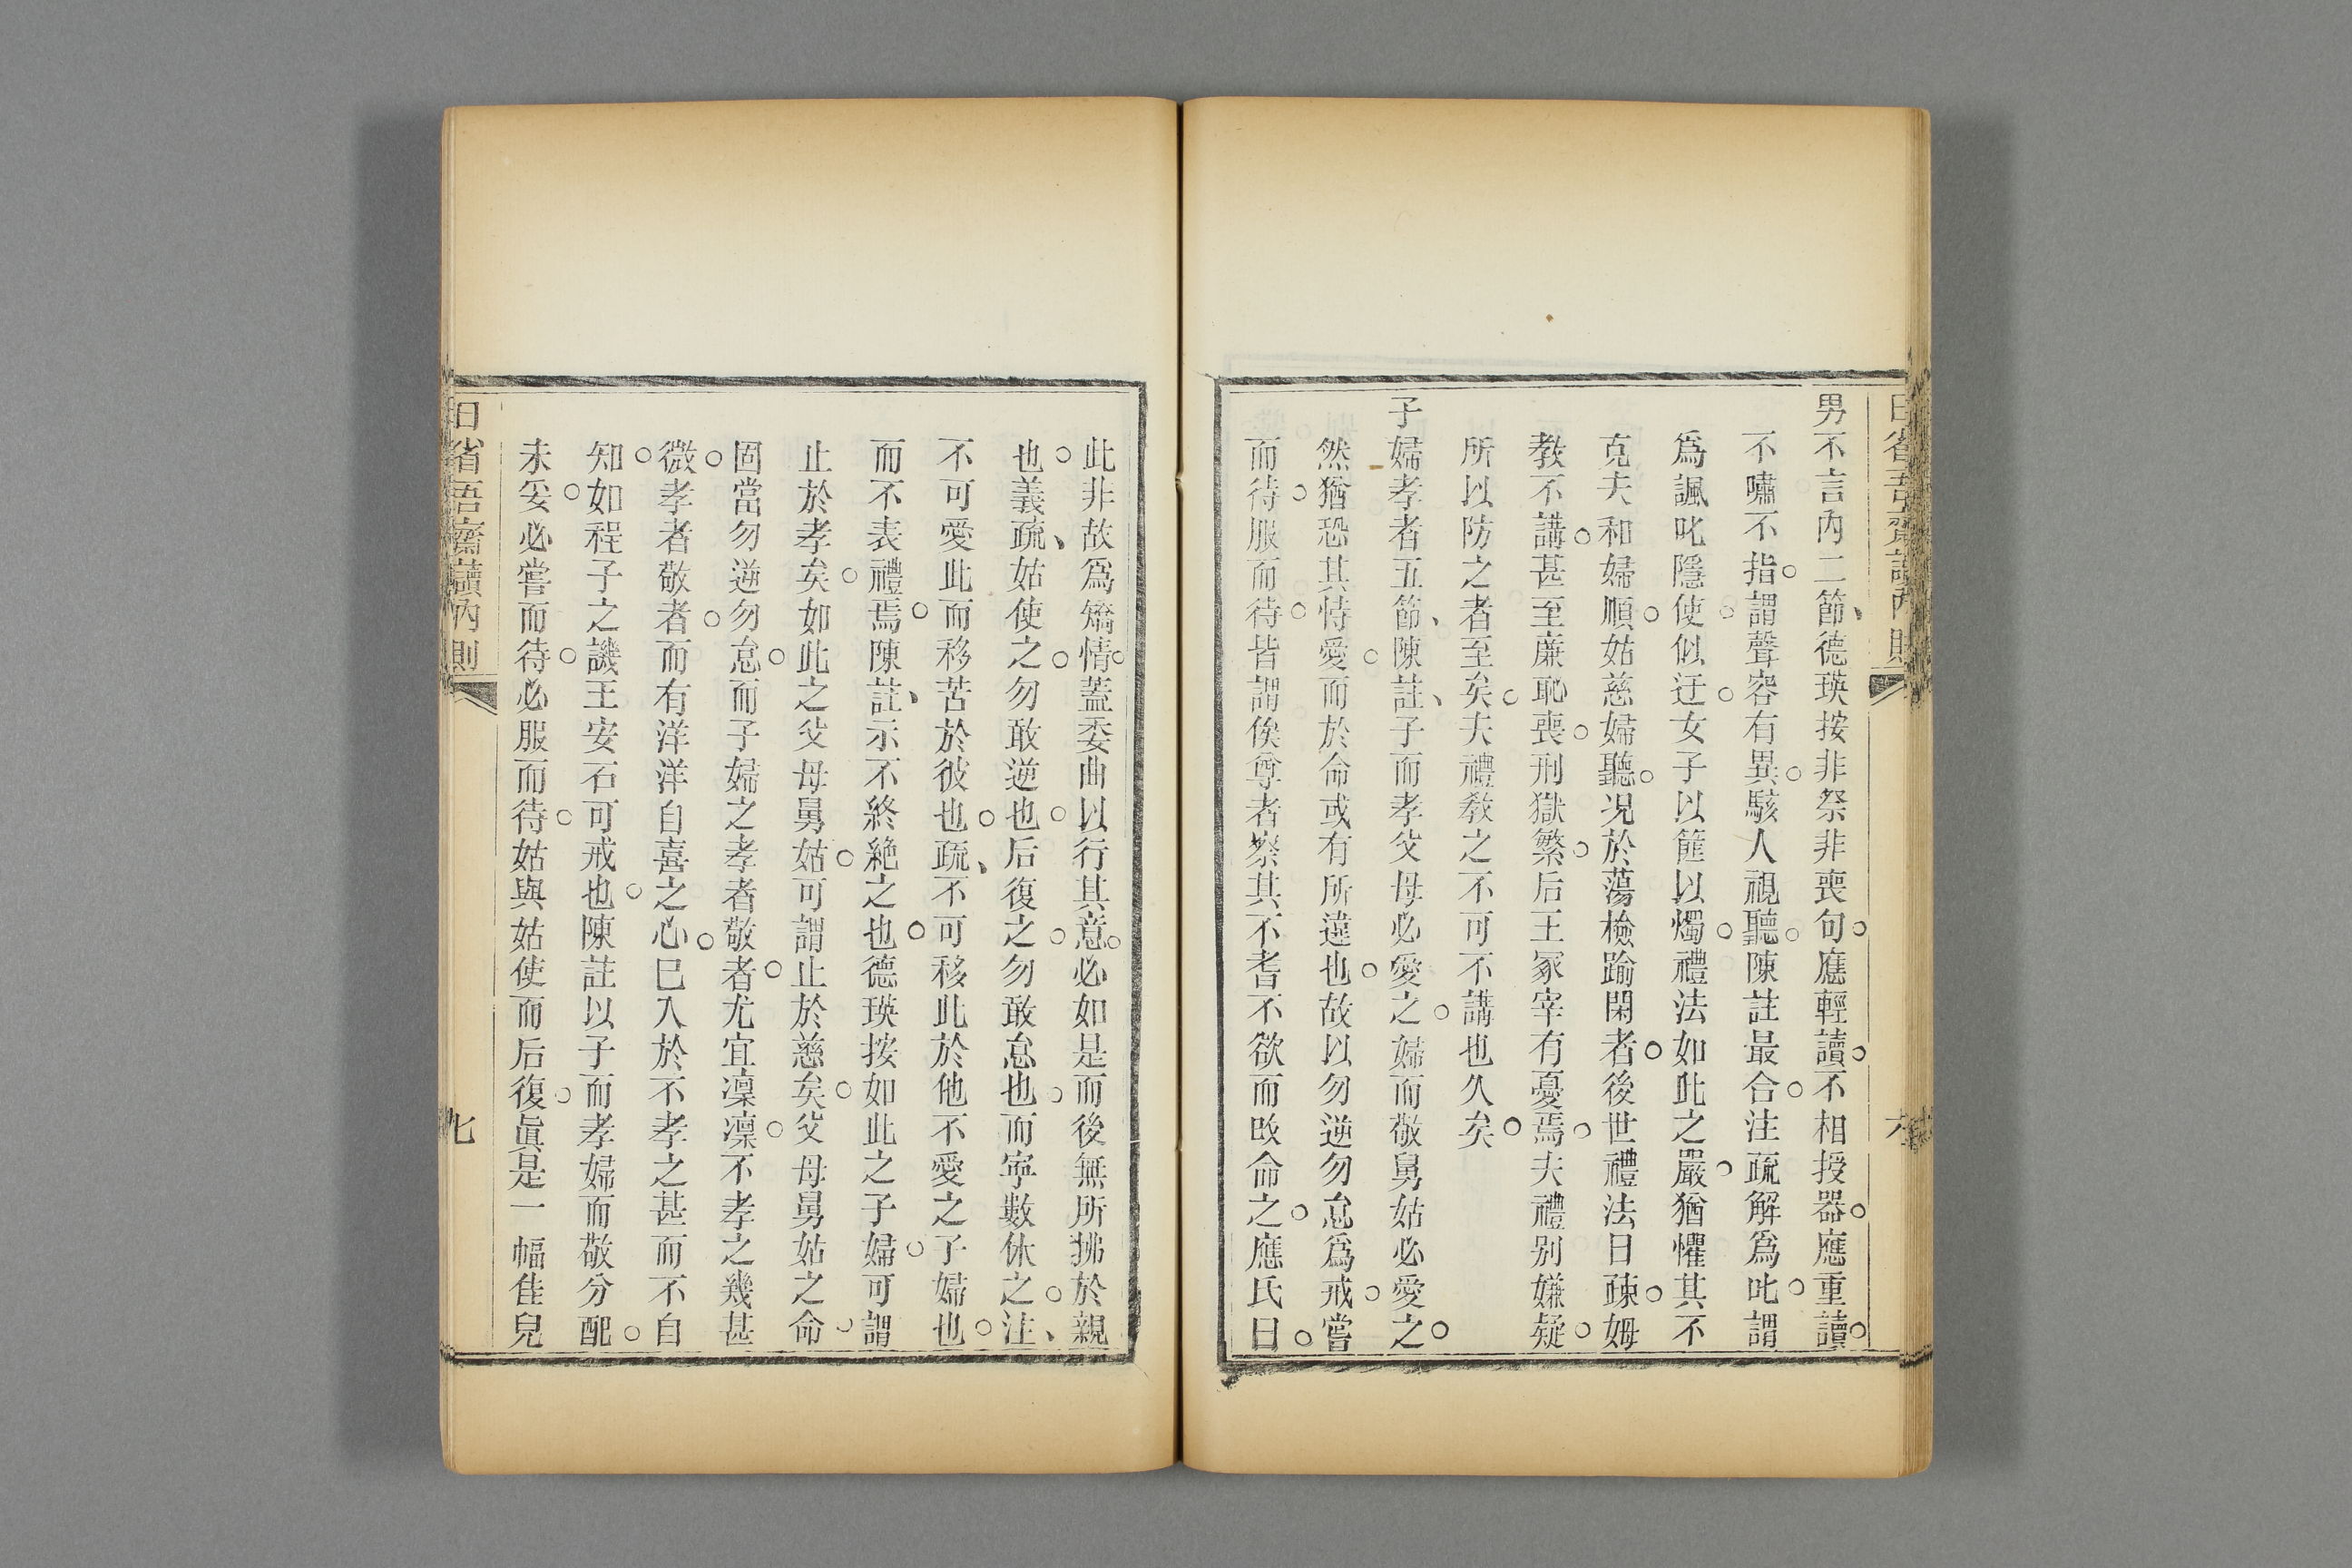 日省吾齋讀內則
六
男不言內二節、德瑛按非祭非喪句○應輕讀○不相授器○應重讀○
不嘯不指○謂聲容有異○駭人視聽○陳註最合○注疏解爲叱○謂
爲諷叱隱使○似迂○女子以簂以燭○禮法如此之嚴○猶懼其不
克夫和婦順○姑慈婦聽○况於蕩檢踰閑者○後世禮法日疎○姆
教不講○甚至廉恥喪○刑獄繁○后王冢宰有憂焉○夫禮别嫌疑○
所以防之者至矣○夫禮教之不可不講也久矣○
子婦孝者五節、陳註、子而孝父母必愛之○婦而敬舅姑必愛之○
然猶恐其恃愛○而於命或有所違也○故以勿逆勿怠爲戒○嘗
而待○服而待○皆謂俟尊者察其不耆不欲而改命之○應氏曰○
此非故爲矯情○蓋委曲以行其意○必如是而後無所拂於親
也○義疏、姑使之○勿敢逆也○后復之○勿敢怠也○而寕數休之○注、
不可愛此而移苦於彼也○疏、不可移此於他不愛之子婦也○
而不表禮焉○陳註、示不終絶之也○德瑛按如此之子婦○可謂
止於孝矣○如此之父母舅姑○可謂止於慈矣○父母舅姑之命○
固當勿逆勿怠○而子婦之孝者敬者○尤宜凜凜○不孝之幾甚
微○孝者敬者○而有洋洋自喜之心○已入於不孝之甚而不自
知○如程子之譏王安石可戒也○陳註以子而孝婦而敬分配○
未妥○必嘗而待○必服而待○姑與姑使而后復○眞是一幅佳兒
日省吾齋讀內則
七